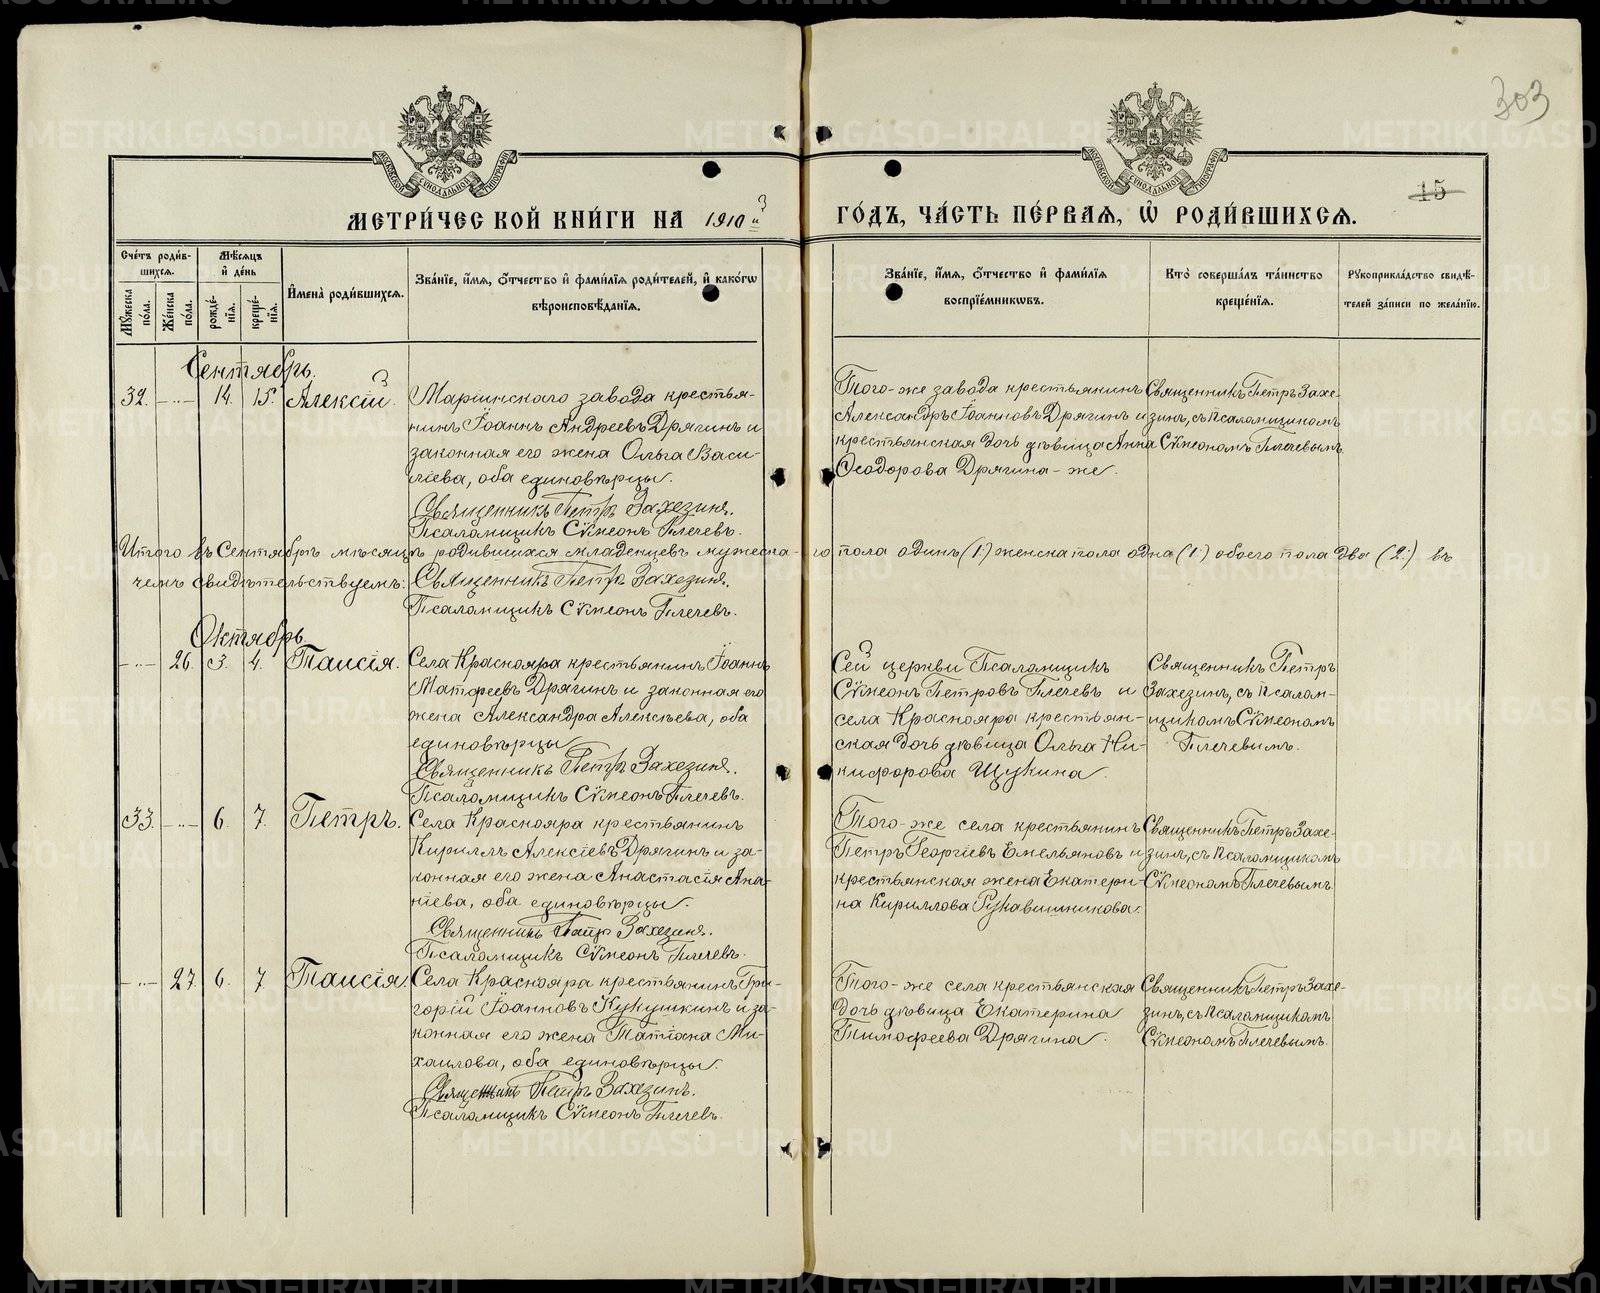 303
15
МОСКОВСКОЙ СѴНОДАЛЬНОЙ ТИПОГРАФІИ
МОСКОВСКОЙ СѴНОДАЛЬНОЙ ТИПОГРАФІИ
МЕТРИ́ЧЕСКОЙ КНИ́ГИ НА 1910й
ГО́ДЪ, ЧА́СТЬ ПЕ́РВАЯ, Ѡ҆ РОДИ́ВШИХСЯ.
Сче́тъ роди́в-
шихся.
Мѣ́сяцъ
и҆ де́нь
Мꙋ́жеска по́ла.
Же́нска по́ла.
рожде́нїя.
креще́нїя.
И҆мена̀ роди́вшихся.
Зва́нїе, и҆́мя, ѻ҆́тчество и҆ фами́лїя роди́телей, и҆ како́гѡ
вѣроисповѣ́данїя.
Зва́нїе, и҆́мя, ѻ҆́тчество и҆ фами́лїя
воспрїе́мникѡвъ.
Кто̀ соверша́лъ та́инство
креще́нїя.
Рꙋкоприкла́дство свидѣ́-
телей за́писи по жела́нїю.
Сентябрь.
32. —..— 14. 15. Алексій.
Маріинскаго завода крестья-
нинъ Іоаннъ Андреевъ Дрягинъ и
законная его жена Ольга Васи-
ліева, оба единовѣрцы.
Священникъ Петръ Захезинъ.
Псаломщикъ Сѵмеонъ Плечевъ.
Того-же завода крестьянинъ
Александръ Іоанновъ Дрягинъ и
крестьянская дочь дѣвица Анна
Ѳеодорова Дрягина-же.
Священникъ Петръ Захе-
зинъ, съ псаломщикомъ
Сѵмеономъ Плечевымъ.
Итого въ Сентябрѣ мѣсяцѣ родившихся младенцевъ мужеска-го пола одинъ (1.) женска пола одна (1.) обоего пола два (2.) въ
чемъ свидѣтельствуемъ: Священникъ Петръ Захезинъ.
Псаломщикъ Сѵмеонъ Плечевъ.
Октябрь.
—..— 26. 3. 4. Таисія.
Села Краснояра крестьянинъ Іоаннъ
Матфеевъ Дрягинъ и законная его
жена Александра Алексѣева, оба
единовѣрцы.
Священникъ Петръ Захезинъ.
Псаломщикъ Сѵмеонъ Плечевъ.
Сей церкви Псаломщикъ
Сѵмеонъ Петровъ Плечевъ и
села Краснояра крестьян-
ская дочь дѣвица Ольга Ни-
кифорова Щукина.
Священникъ Петръ
Захезинъ, съ псалом-
щикомъ Сѵмеономъ
Плечевымъ.
33. —..— 6. 7. Петръ.
Села Краснояра крестьянинъ
Кириллъ Алексіевъ Дрягинъ и за-
конная его жена Анастасія Ана-
ніева, оба единовѣрцы.
Священникъ Петръ Захезинъ.
Псаломщикъ Сѵмеонъ Плечевъ.
Того-же села крестьянинъ
Петръ Георгіевъ Емельяновъ и
крестьянская жена Екатери-
на Кириллова Рукавишникова.
Священникъ Петръ Захе-
зинъ, съ псаломщикомъ
Сѵмеономъ Плечевымъ
—..— 27. 6. 7 Таисія.
Села Краснояра крестьянинъ Гри-
горій Іоанновъ Кукушкинъ и за-
конная его жена Татіана Ми-
хаилова, оба единовѣрцы.
Священникъ Петръ Захезинъ.
Псаломщикъ Сѵмеонъ Плечевъ.
Того-же села крестьянская
дочь дѣвица Екатерина
Тимофеева Дрягина.
Священникъ Петръ Захе-
зинъ, съ псаломщикомъ
Сѵмеономъ Плечевымъ.
METRIKI.GASO-URAL.RU